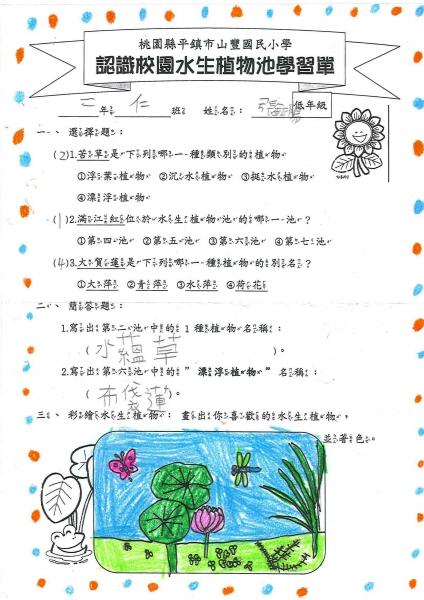 桃園縣平鎮市山豐國民小學
認識校園水生植物池學習單
二年仁班 姓名：張 低年級
一、選擇題：
(2)1.苦草是下列哪一種類別的植物
①浮葉植物 ②沉水植物 ③挺水植物
④漂浮植物
(1)2.滿江紅位於水生植物池的哪一池？
①第四池 ②第五池 ③第六池 ④第七池
(4)3.大賀蓮是下列哪一種植物的別名？
①大萍 ②青萍 ③水萍 ④荷花
二、簡答題：
1.寫出第二池中的1種植物名稱：
(水蘊草)。
2.寫出第六池中的"漂浮植物"名稱：
(布袋蓮)。
三、彩繪水生植物：畫出你喜歡的水生植物，
並著色。